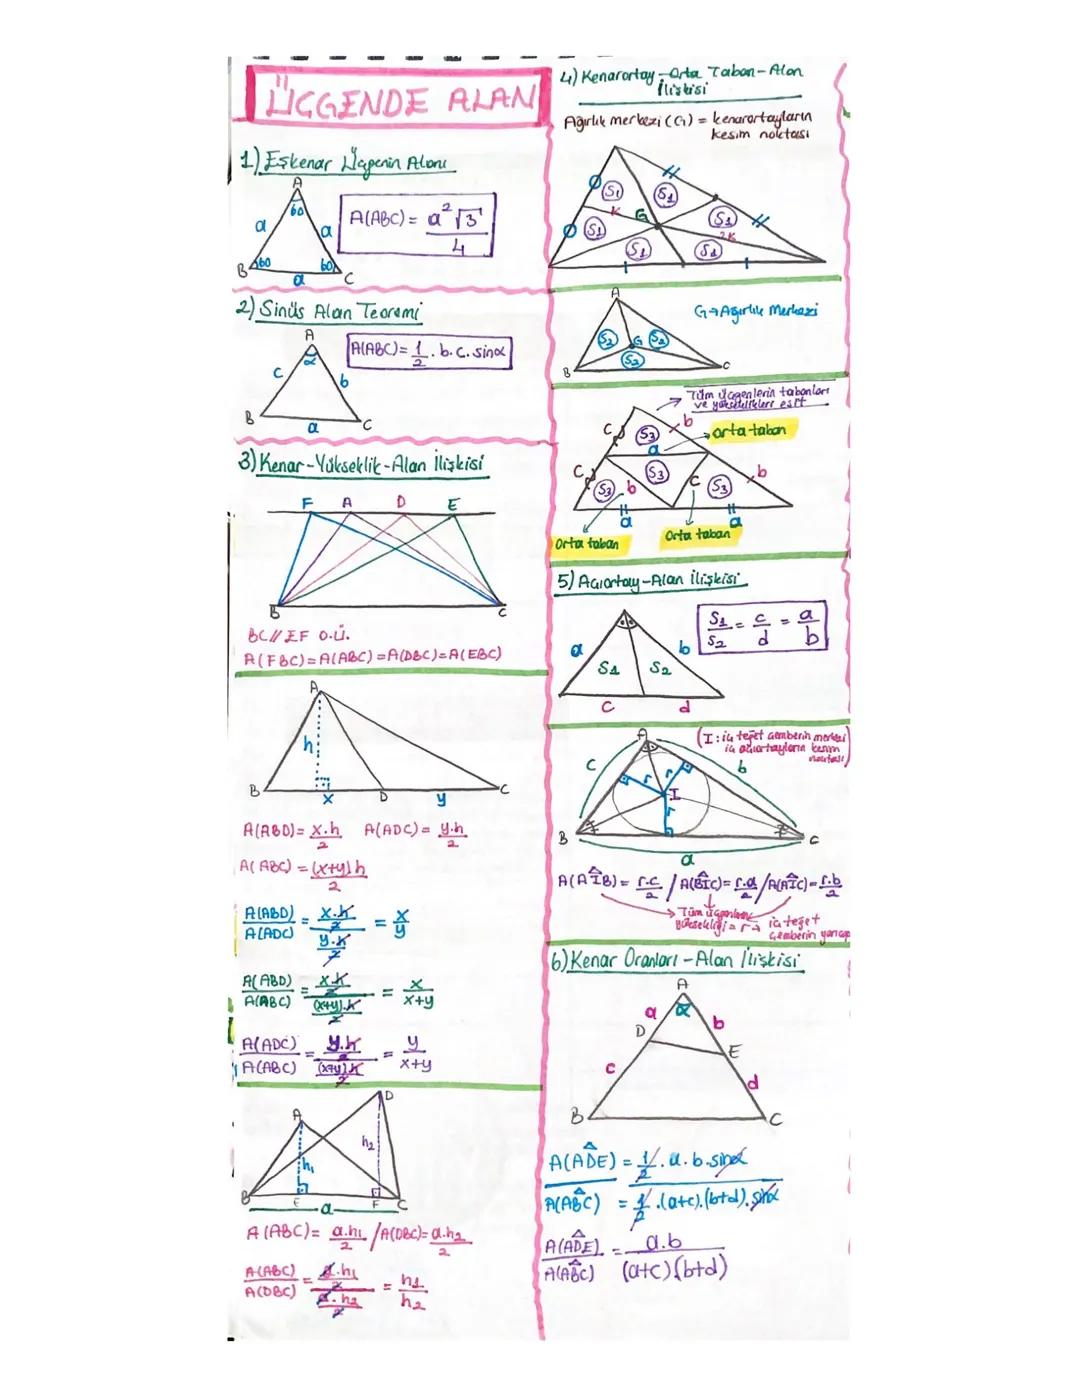 ÜÇGENDE ALAN
1) Eşkenar Üçgenin Alanı
A
60
a
a
A(ABC) = a²√3 / 4
B
60
60
C
a
2) Sinüs Alan Teoremi
A
α
A(ABC) = 1/2 . b. c. sinα
c
b
B
C
a
3) Kenar-Yükseklik-Alan İlişkisi
F A D E
B C
BC // EF O.Ü.
A(FBC) = A(ABC) = A(DBC) = A(EBC)
A
h
B x D y C
A(ABD) = x.h / 2 A(ADC) = y.h / 2
A(ABC) = (x+y)h / 2
A(ABD) / A(ADC) = x.h/2 / y.h/2 = x / y
A(ABD) / A(ABC) = x.h/2 / (x+y).h/2 = x / x+y
A(ADC) / A(ABC) = y.h/2 / (x+y)h/2 = y / x+y
D
A
h₂
h₁
B E F C
a
A(ABC) = a.h₁ / 2 / A(DBC) = a.h₂ / 2
A(ABC) / A(DBC) = a.h₁/2 / a.h₂/2 = h₁ / h₂
4) Kenarortay-Orta Taban-Alan
İlişkisi
Ağırlık merkezi (G) = kenarortayların
kesim noktası
S₁ S₁
k G S₁
S₁ 2k
S₁ S₁
A
G→Ağırlık Merkezi
S₂ G S₂
S₂
B C
Tüm üçgenlerin tabanları
ve yükseklikleri eşit
c S₃ b
orta taban
a
c S₃ b
S₃ b c S₃
a a
Orta taban
Orta taban
5) Açıortay-Alan İlişkisi
S₁ / S₂ = c / d = a / b
a b
S₁ S₂
c d
(I: iç teğet çemberin merkezi
iç açıortayların kesim
noktası)
A
c b
r r
I
r
B C
a
A(AIB) = r.c / 2 / A(BIC) = r.a / 2 / A(AIC) = r.b / 2
Tüm üçgenlerin
yüksekliği = r → iç teğet
çemberin yarıçap
6) Kenar Oranları-Alan İlişkisi
A
a α b
D
E
c
d
B C
A(ADE) = 1/2 . a . b . sinα
A(ABC) = 1/2 .(a+c).(b+d). sinα
A(ADE) / A(ABC) = a.b / (a+c)(b+d)